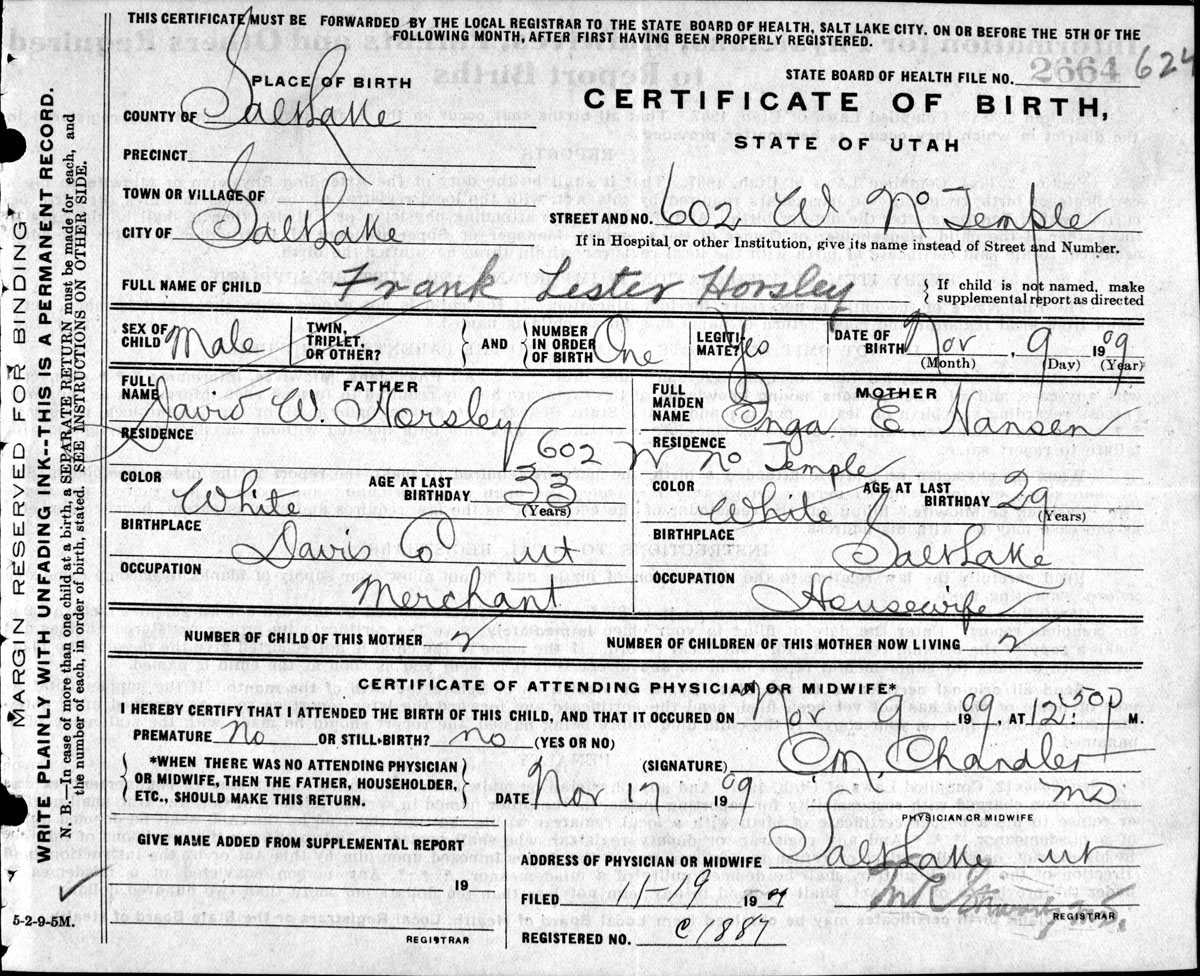 THIS CERTIFICATE MUST BE FORWARDED BY THE LOCAL REGISTRAR TO THE STATE BOARD OF HEALTH, SALT LAKE CITY, ON OR BEFORE THE 5TH OF THE
FOLLOWING MONTH, AFTER FIRST HAVING BEEN PROPERLY REGISTERED.
STATE BOARD OF HEALTH FILE NO. 2664 624
PLACE OF BIRTH
CERTIFICATE OF BIRTH,
STATE OF UTAH
COUNTY OF Salt Lake
PRECINCT
TOWN OR VILLAGE OF
CITY OF Salt Lake
STREET AND NO. 602 W No Temple
If in Hospital or other Institution, give its name instead of Street and Number.
FULL NAME OF CHILD Frank Lester Horsley { If child is not named, make supplemental report as directed
SEX OF CHILD Male TWIN, TRIPLET, OR OTHER? } AND { NUMBER IN ORDER OF BIRTH One LEGITIMATE? Yes DATE OF BIRTH Nov, 9 1909
(Month) (Day) (Year)
FATHER
FULL NAME David W. Horsley
RESIDENCE 602 W No Temple
COLOR White AGE AT LAST BIRTHDAY 33
(Years)
BIRTHPLACE Davis Co Ut
OCCUPATION Merchant
MOTHER
FULL MAIDEN NAME Inga E Hansen
RESIDENCE
COLOR White AGE AT LAST BIRTHDAY 29
(Years)
BIRTHPLACE Salt Lake
OCCUPATION Housewife
NUMBER OF CHILD OF THIS MOTHER 2 NUMBER OF CHILDREN OF THIS MOTHER NOW LIVING 2
CERTIFICATE OF ATTENDING PHYSICIAN OR MIDWIFE*
I HEREBY CERTIFY THAT I ATTENDED THE BIRTH OF THIS CHILD, AND THAT IT OCCURED ON Nov 9 1909, AT 12:50 P M.
PREMATURE No OR STILL-BIRTH? no (YES OR NO)
{ *WHEN THERE WAS NO ATTENDING PHYSICIAN
OR MIDWIFE, THEN THE FATHER, HOUSEHOLDER,
ETC., SHOULD MAKE THIS RETURN. }
(SIGNATURE) CM. Chandler
MD
DATE Nov 1909
PHYSICIAN OR MIDWIFE
GIVE NAME ADDED FROM SUPPLEMENTAL REPORT
19
REGISTRAR
ADDRESS OF PHYSICIAN OR MIDWIFE Salt Lake ut
FILED 11-19 1909
REGISTRAR
REGISTERED NO. C1887
MARGIN RESERVED FOR BINDING
WRITE PLAINLY WITH UNFADING INK--THIS IS A PERMANENT RECORD.
N. B.—In case of more than one child at a birth, a SEPARATE RETURN must be made for each, and
the number of each, in order of birth, stated. SEE INSTRUCTIONS ON OTHER SIDE.
5-2-9-5M.